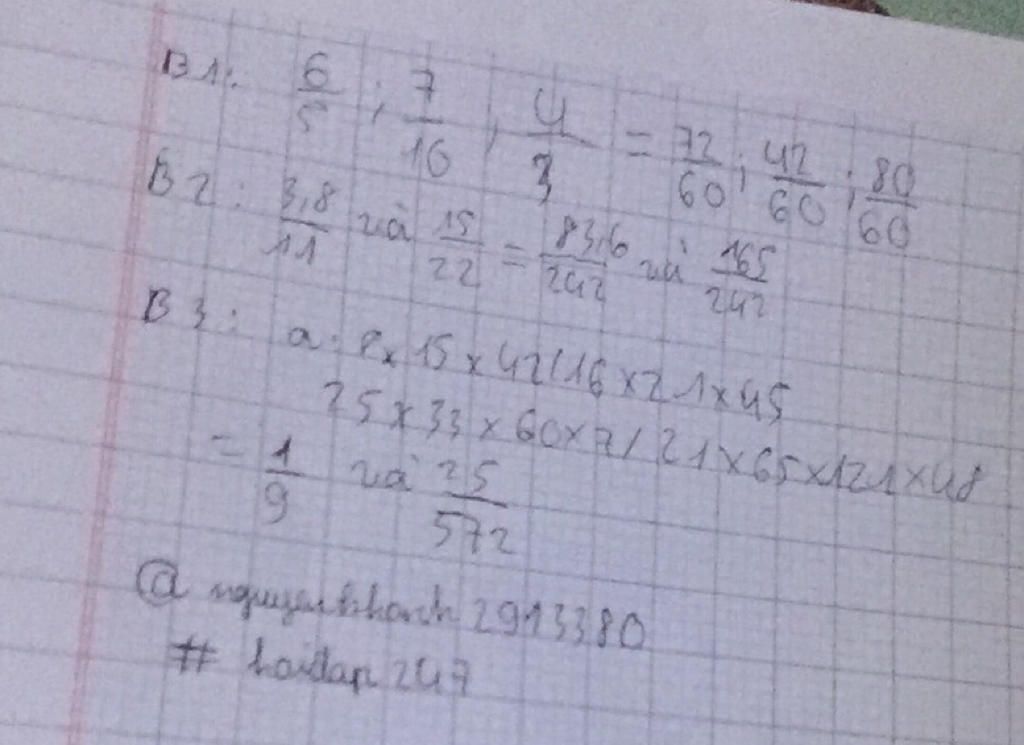 B1: 6/5 ; 7/16 , 4/3 = 72/60 ; 42/60 ; 80/60
B2: 3,8/11 và 15/22 = 83,6/242 và 165/242
B3: a. 8 x 15 x 42/16 x 21 x 45
25 x 33 x 60 x 7/21 x 65 x 121 x 48
= 1/9 và 25/572
@ nguyenkhanh2913380
# hoidap247